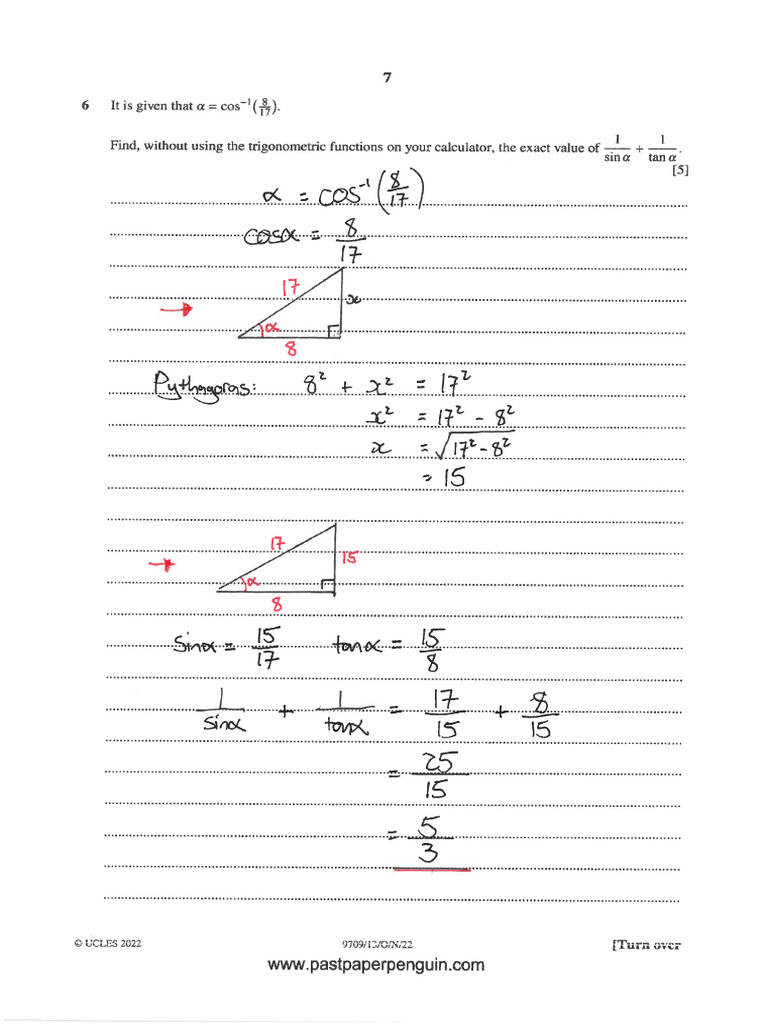 7
6 It is given that α = cos⁻¹(8/17).
Find, without using the trigonometric functions on your calculator, the exact value of 1/sin α + 1/tan α.
[5]
α = cos⁻¹(8/17)
cosα = 8/17
17
x
α
8
Pythagoras: 8² + x² = 17²
x² = 17² - 8²
x = √(17² - 8²)
= 15
17
15
α
8
sinα = 15/17 tanα = 15/8
1/sinα + 1/tanα = 17/15 + 8/15
= 25/15
= 5/3
© UCLES 2022 9709/13/O/N/22 [Turn over
www.pastpaperpenguin.com